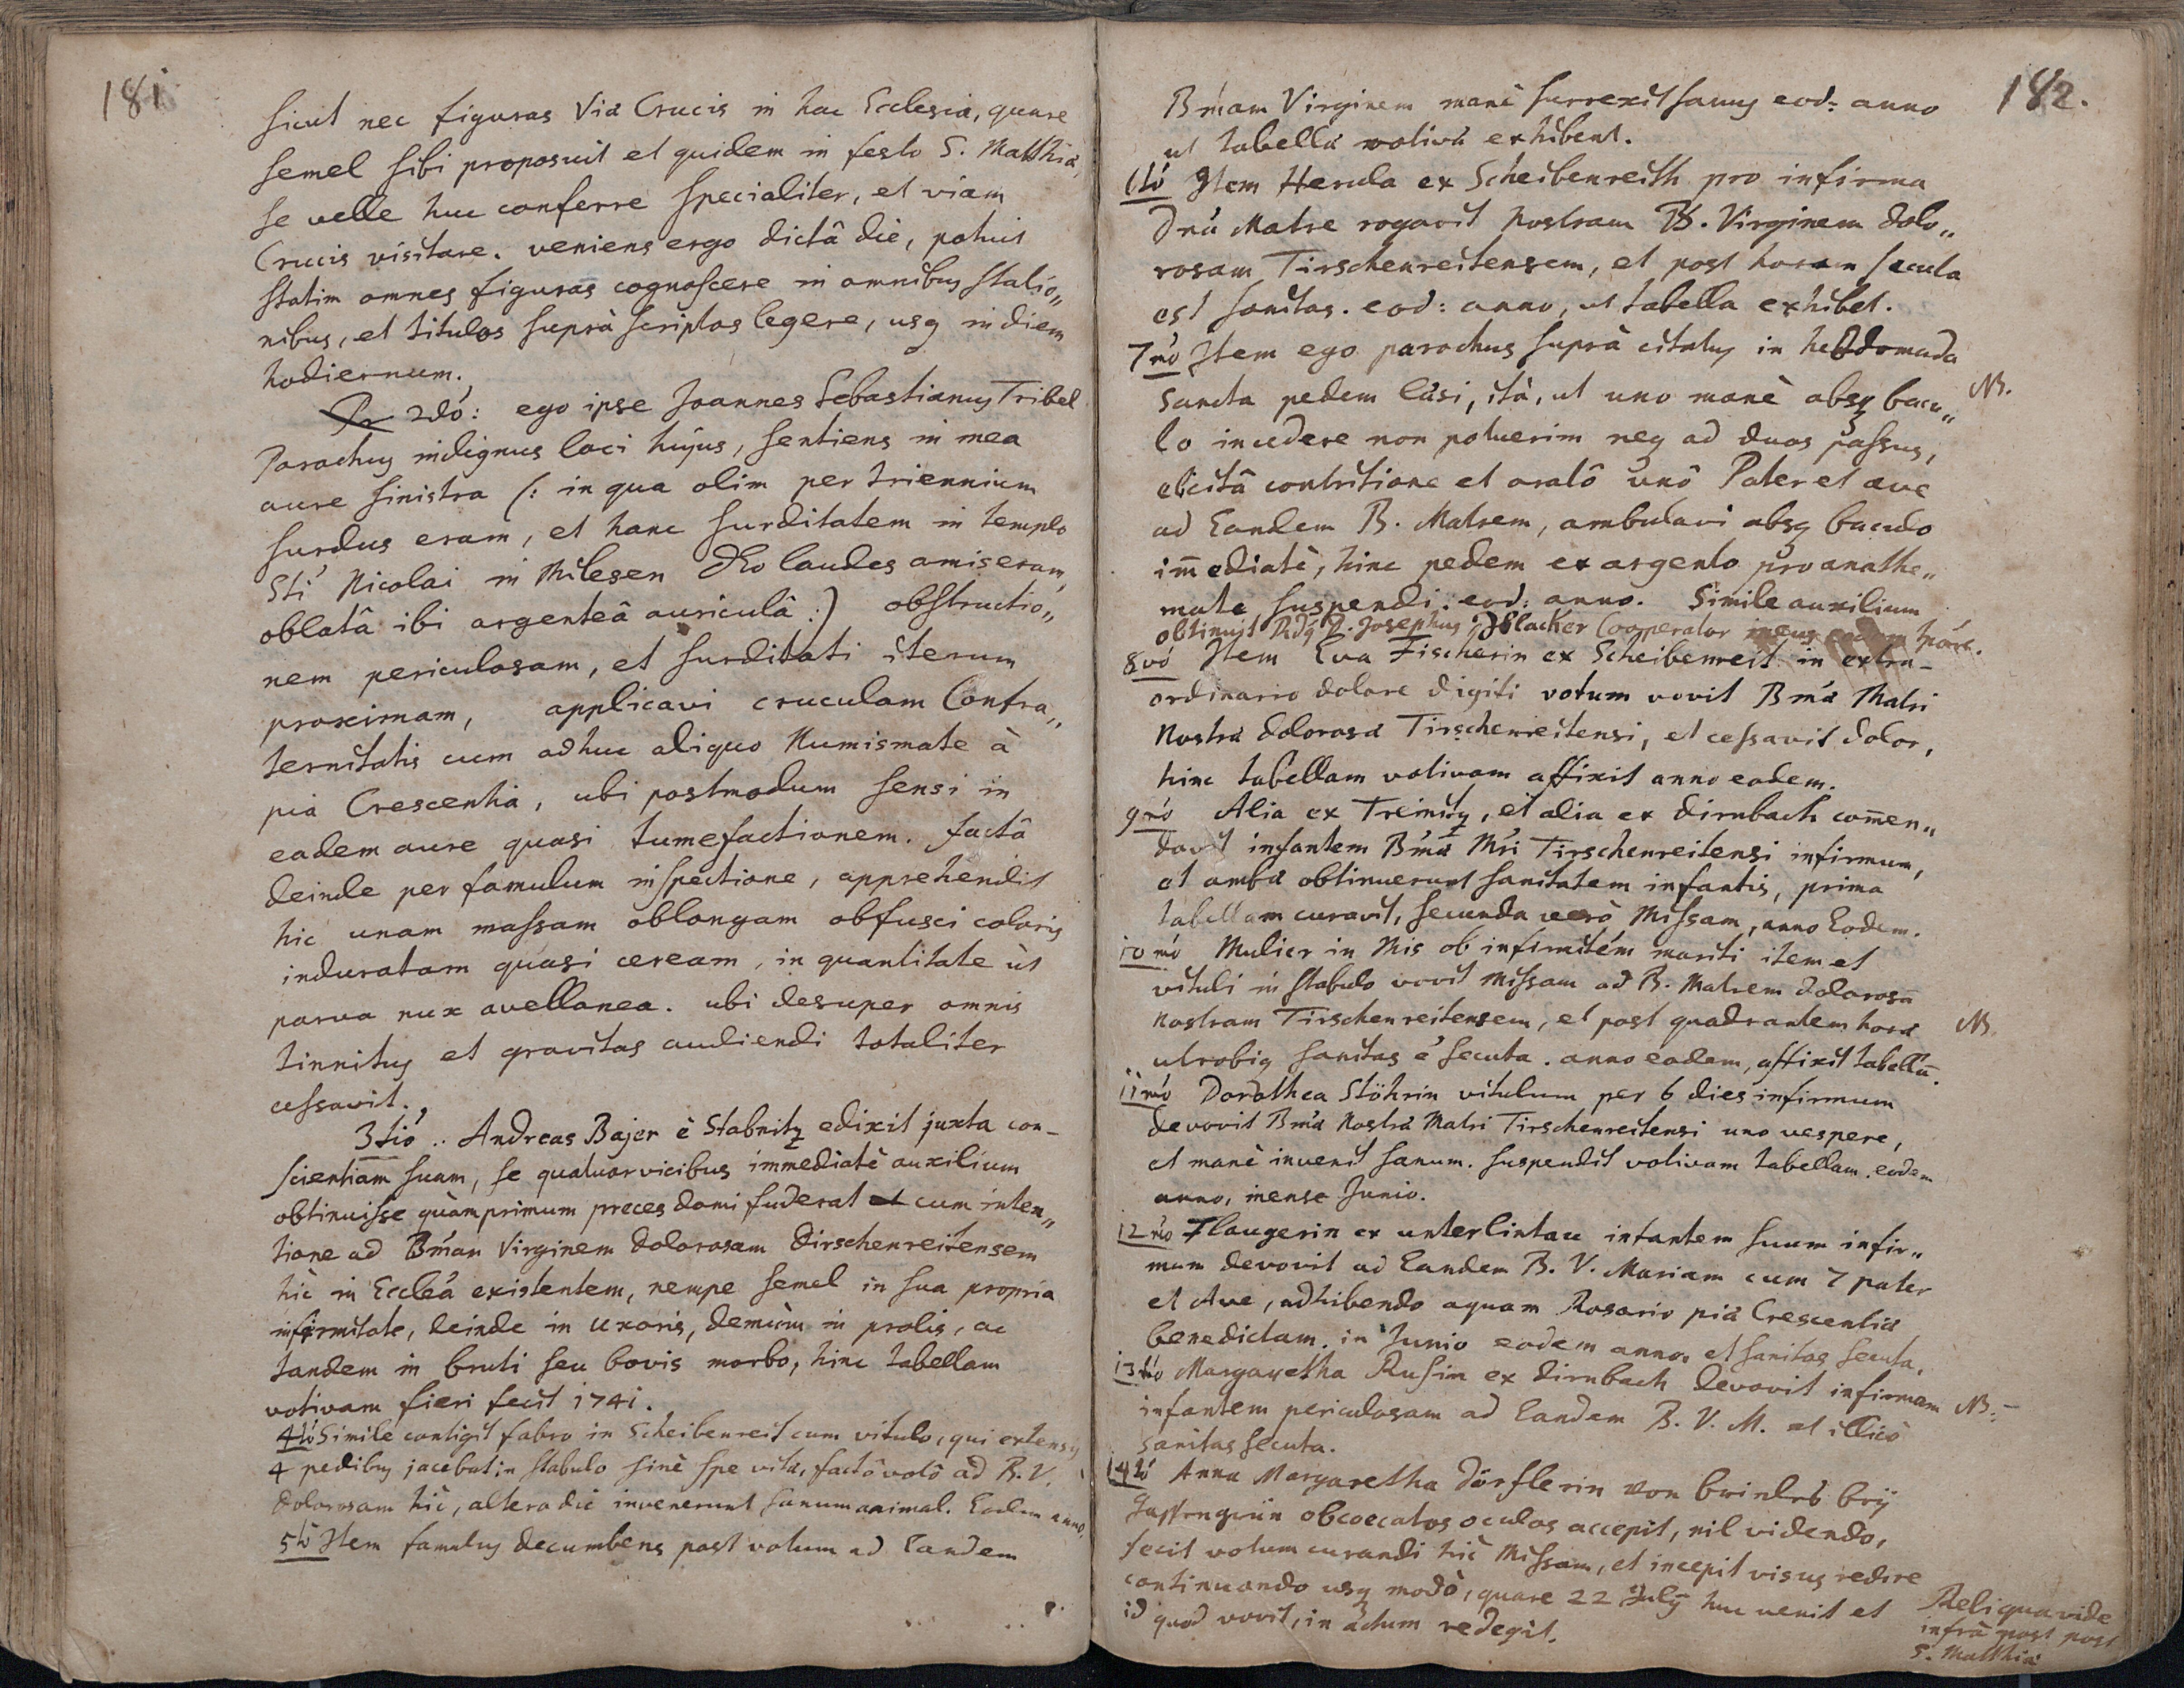 181
sicut nec figuras Viæ Crucis in hac Ecclesia, quare
semel sibi proposuit et quidem in festo S. Matthiæ,
se velle huc conferre specialiter, et viam
Crucis visitare. veniens ergo dictâ die, potuit
statim omnes figuras cognoscere in omnibus statio„
nibus, et titulos suprà scriptos legere, usq in diem
hodiernum.
2dó: ego ipse Joannes Sebastianus Tribel
Parochus indignus loci hujus, sentiens in mea
aure sinistra (: in qua olim per triennium
surdus eram, et hanc surditatem in templo
Sti Nicolai in Milesen Deo laudes amiseram,
oblatâ ibi argenteâ auriculâ :) obstructio„
nem periculosam, et surditati iterum
proximam, applicavi cruculam Confra„
ternitatis cum adhuc aliquo Numismate à
pia Crescentia, ubi postmodum sensi in
eadem aure quasi tumefactionem. factâ
deinde per famulum inspectione, apprehendit
hic unam massam oblongam obfusci coloris
induratam quasi ceream, in quantitate ùt
parva nux avellanea. ubi desuper omnis
tinnitus et gravitas audiendi totaliter
cessavit.
3tió .. Andreas Bajer è Stabnitz edixit juxta con-
scientiam suam, se quatuor vicibus immediatè auxilium
obtinuisse quàmprimum preces domi fuderat et cum inten„
tione ad Bmam Virginem dolorosam Dirschenreitensem
hìc in Eccleâ existentem, nempe semel in sua propria
infirmitate, deinde in uxoris, demùm in prolis, ac
tandem in bruti seu bovis morbo, hinc tabellam
votivam fieri fecit 1741.
4tò Simile contigit fabro in Scheibenreit cum vitulo, qui extensis
4 pedibus jacebat in stabulo sinè spe vitæ, factô votô ad B.V.
dolorosam hìc, altera diè invenerunt sanum animal. Eodem anno.
5tò Item famulus decumbens post votum ad Eandem
182.
Bmam Virginem manè surrexit sanus eod: anno
ut tabellâ votivâ exhibent.
6tò Item Herula ex Scheibenreith pro infirma
Matre rogavit nostram B. Virginem dolo„
rosam Tirschenreitensem, et post horam secuta
est sanitas. eod: anno, ut tabella exhibet.
7mò Item ego parochus suprà citatus in hebdomada
Sancta pedem læsi, ità, ut uno manè absq bacu„
NB.
lo incedere non potuerim neq ad duos passus,
elicitâ contritione et oratô unô Pater et ave
ad Eandem B. Matrem, ambulavi absq baculo
imediatè, hinc pedem ex argento pro anathe„
mate suspendi. eod: anno. Simile auxilium
obtinuit Rdq D. Josephus Cooperator meus
8vò Item Eva Fischerin ex Scheibenreit in extra-
ordinario dolore digiti votum vovit Bmæ Matri
Nostræ dolorosæ Tirschenreitensi, et cessavit dolor,
hinc tabellam votivam affixit anno eodem.
9nò Alia ex Treinitz, et alia ex dirnbach comen„
davit infantem Bmæ Mri Tirschenreitensi infirmum,
et ambæ obtinuerunt sanitatem infantis, prima
tabellam curavit, secunda verò Missam, anno Eodem.
10mò Mulier in Mis ob infirmitem mariti item et
vituli in stabulo vovit Missam ad B. Matrem dolorosa
nostram Tirschenreitensem, et post quadrantem horæ
NB.
utrobiq sanitas è secuta. anno eodem, affixit tabella.
11mò Dorothea Stöhrin vitulum per 6 dies infirmum
devovit Bmæ Nostræ Matri Tirschenreitensi uno vespere,
et manè invenit sanum. suspendit votivam tabellam. eodem
anno, mense Junio.
12mò Flaugerin ex unterlintau infantem suum infir„
mum devovit ad Eandem B. V. Mariam cum 7 pater
et Ave, adhibendo aquam Rosario piæ Crescentiæ
benedictam. in Junio eodem anno. et sanitas secuta.
13tiò Margaretha Rusin ex dirnbach devovit infirmam
NB:
infantem periculosam ad Eandem B. V. M. et illicò
sanitas secuta.
14tò Anna Margaretha Dörflerin von
obcoecatos oculos accepit, nil videndo,
fecit votum curandi hìc Missam, et incepit visus redire
continuando usq modò, quare 22 July huc venit et
id quod vovit, in actum redegit.
Reliqua vide
infrà post post
S. Matthiæ